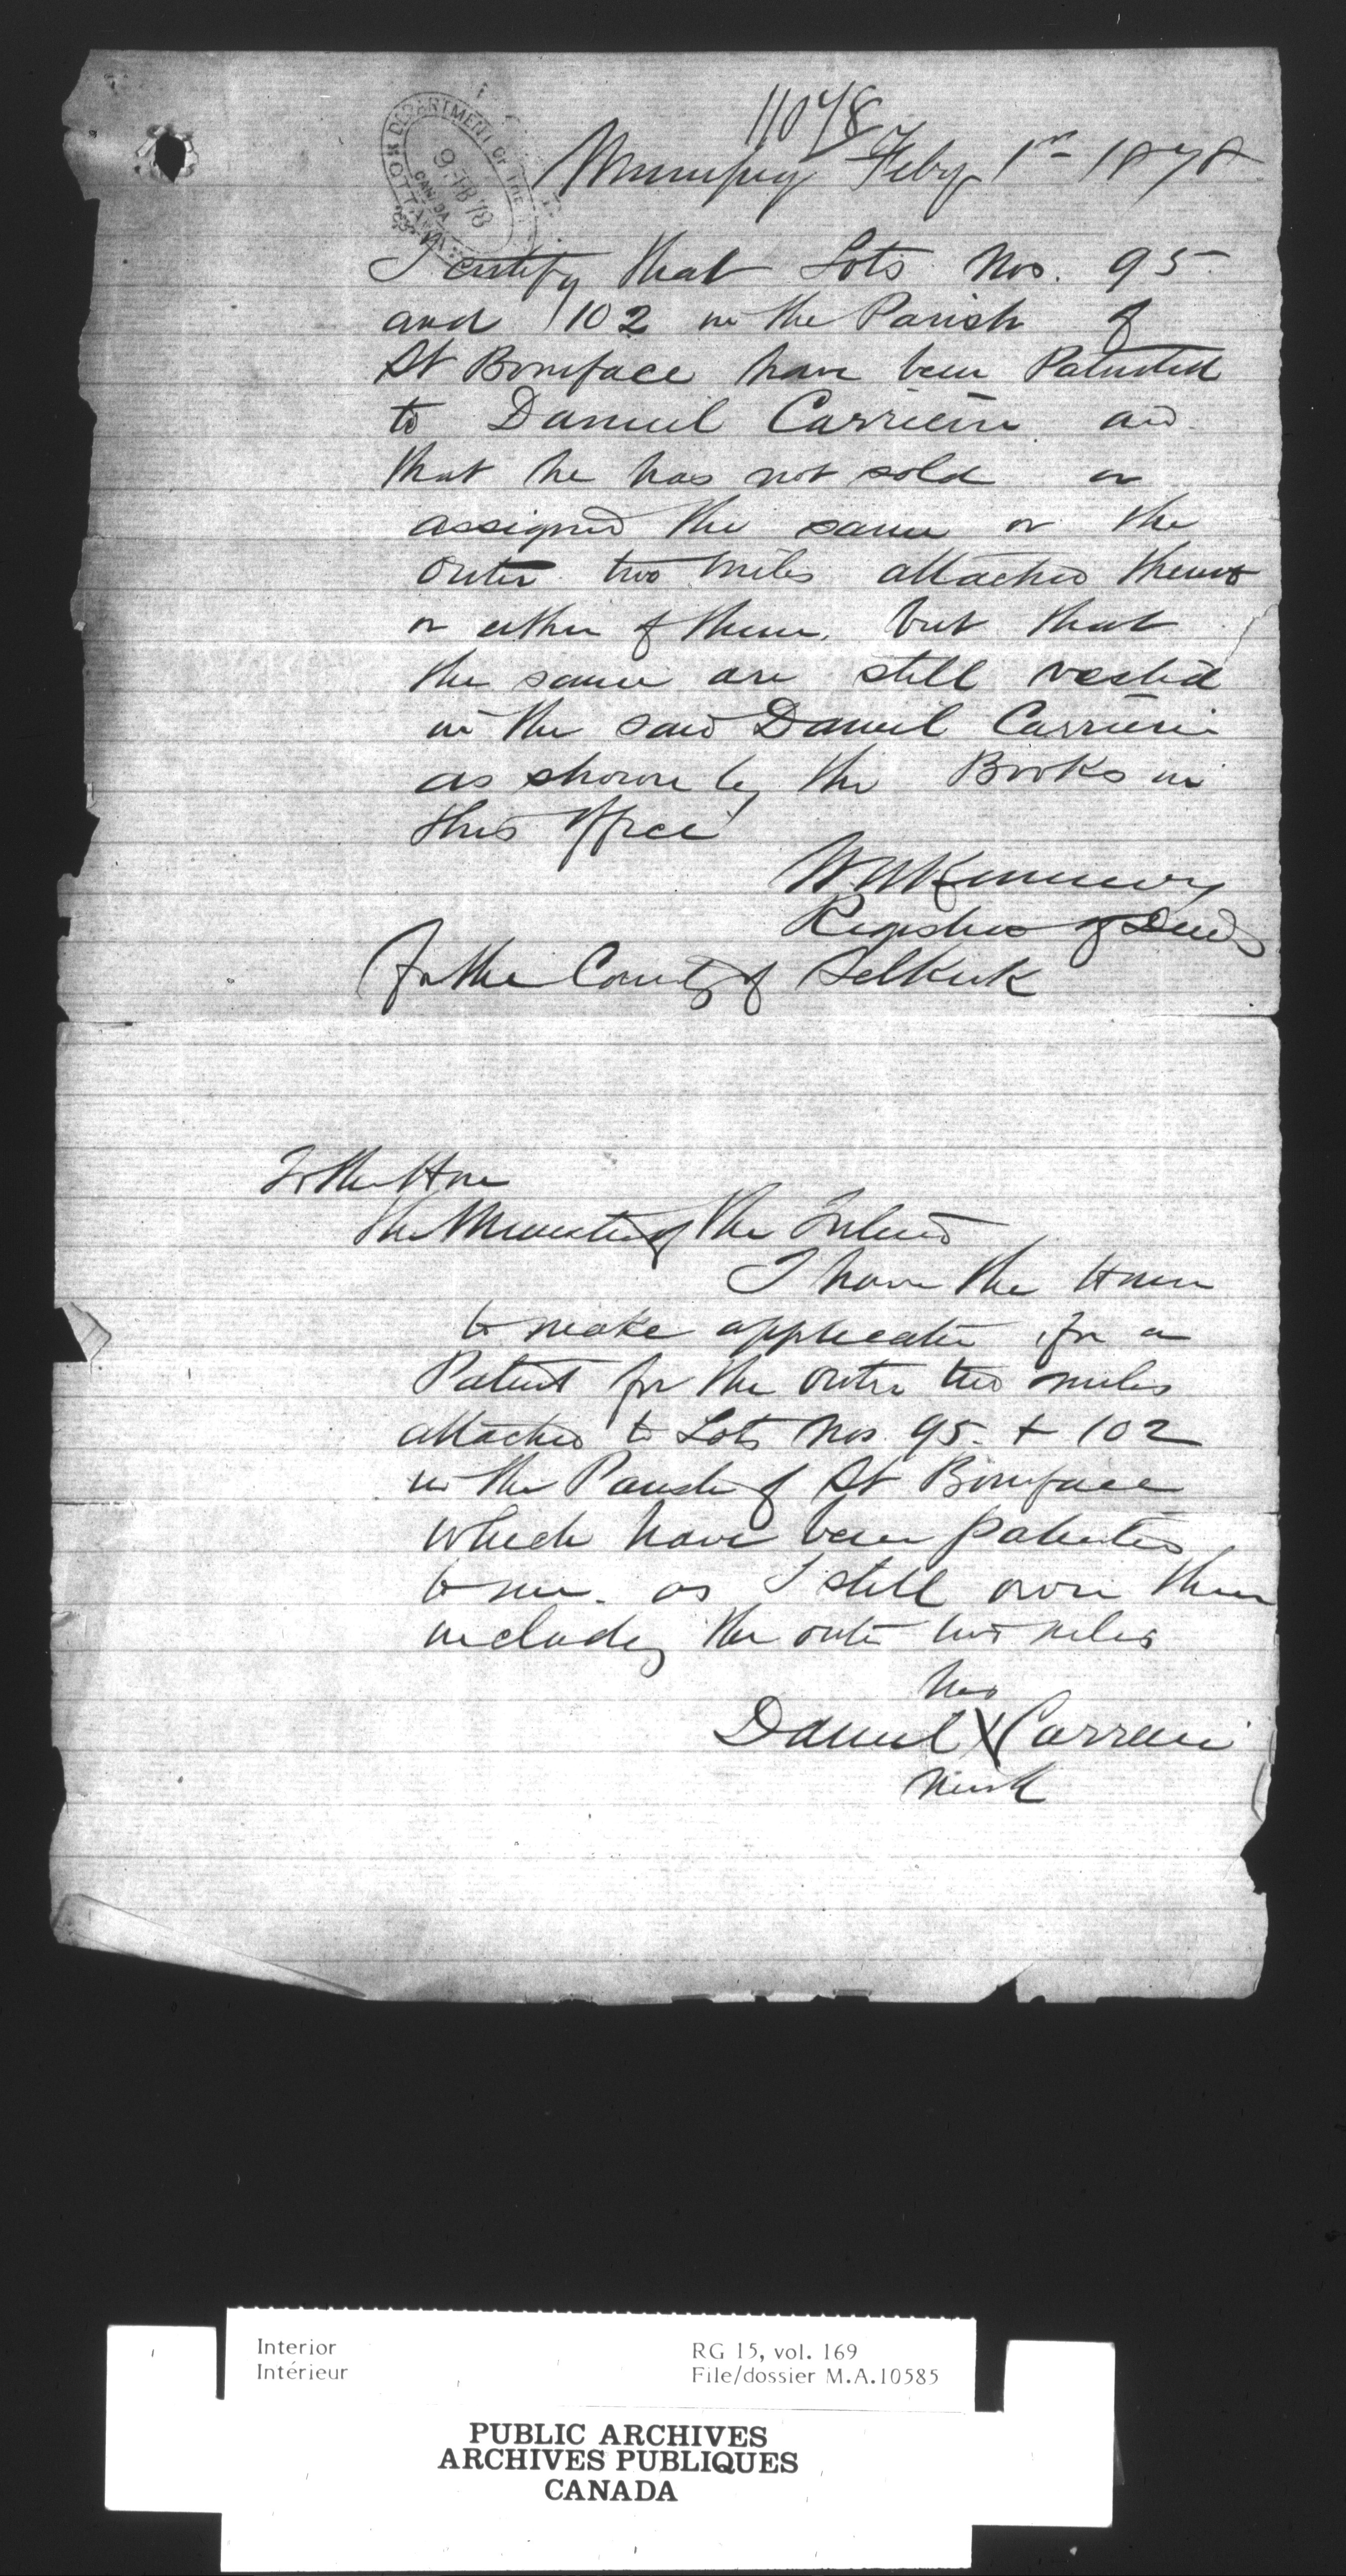 11048
Winnipeg Feby 1st 1878
DEPARTMENT OF THE
OTTAWA
CANADA
9 FEB 78
I certify that Lots Nos. 95
and 102 in the Parish of
St Boniface have been Patented
to Daniel Carriere and
that he has not sold or
assigned the same or the
outer two miles attached thereto
or either of them. but that
the same are still vested
in the said Daniel Carriere
as shown by the Books in
this Office
W N Kennedy
Registrar of Deeds
for the County of Selkirk
To the Hon
the Minister of the Interior
I have the Honor
to make application for a
Patent for the outer two miles
attached to Lots Nos. 95. + 102
in the Parish of St Boniface
which have been patented
to me. as I still own them
including the outer two miles
his
Daniel X Carriere
mark
Interior
Intérieur
RG 15, vol. 169
File/dossier M.A.10585
PUBLIC ARCHIVES
ARCHIVES PUBLIQUES
CANADA